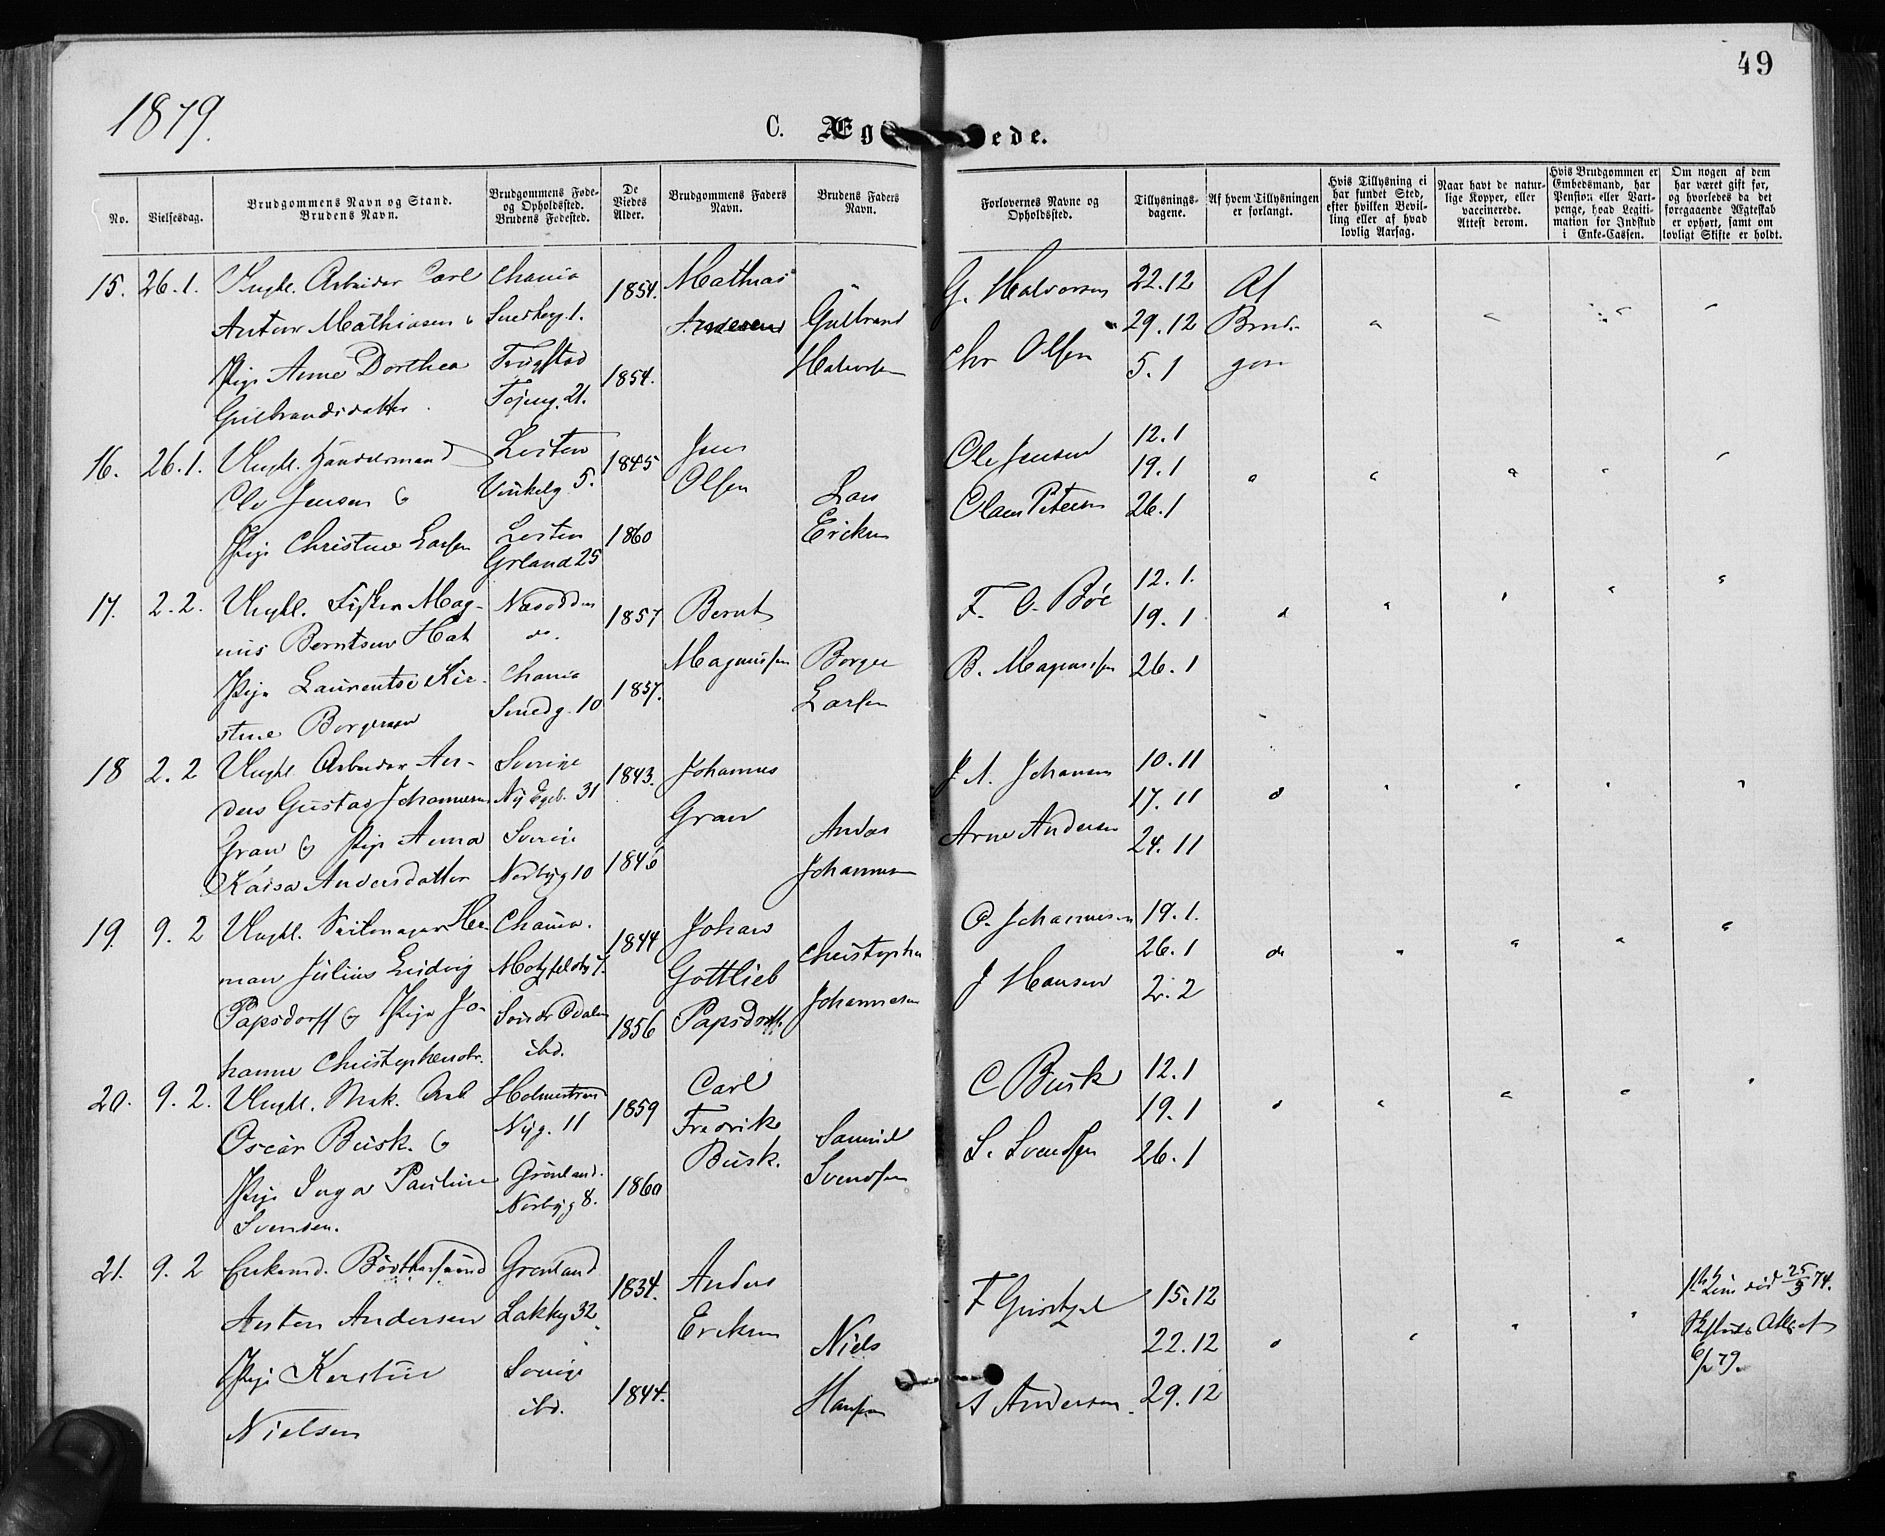 49
1879.
C. Æg ede.
No.
Vielsesdag.
Brudgommens Navn og Stand.
Brudens Navn.
Brudgommens Føde-
og Opholdssted.
Brudens Fødested.
De
Viedes
Alder.
Brudgommens Faders
Navn.
Brudens Faders
Navn.
Forlovernes Navne og
Opholdssted.
Tillysnings-
dagene.
Af hvem Tillysningen
er forlangt.
Hvis Tillysning ei
har fundet Sted,
efter hvilken Bevil-
ling eller af hvad
lovlig Aarsag.
Naar havt de natur-
lige Kopper, eller
vaccinerede.
Attest derom.
Hvis Brudgommen er
Embedsmand, har
Pension eller Vart-
penge, hvad Legiti-
mation for Indskud
i Enke-Cassen.
Om nogen af dem
har været gift før,
og hvorledes da det
foregaaende Ægteskab
er ophørt, samt om
lovligt Skifte er holdt.
15. 26.1.
Ungkl. Arbeider Carl
Anton Mathiasen &
Pige Anne Dorthea
Gulbrandsdatter.
Chania
Smedbyg. 1.
Trygstad
Tøjeng. 21.
1854.
1854.
Mathias
Andersen
Gulbrand
Halvorsen
G. Halvorsen
Chr Olsen
22.12
29.12
5.1
Af
Brud-
gom
16. 26.1.
Ungkl. Handelsmand
Ole Jensen &
Pige Christine Larsen
Løiten
Vinkelg. 5.
Løiten
Grland 25
1845
1860
Jens
Olsen
Lars
Ericksen
Ole Jensen
Olaus Petersen
12.1
19.1
26.1
17. 2.2.
Ungkl. Fisker Mag-
nus Berntsen Hat
Pige Laurentse Kir-
stine Borgersen
Nesodden
do.
Chania
Smedg. 10
1857
1857.
Bernt
Magnussen
Borger
Larsen
F. O. Bøe
B. Magnussen
12.1.
19.1
26.1
18 2.2
Ungkl Arbeider An-
ders Gustav Johannesen
Gran & Pige Anna
Kaisa Andersdatter
Sverige
Ny Egeb. 31
Sverige
Nordbyg 10
1843.
1846
Johannes
Gran
Andas
Johannesen
J. A. Johansen
Arne Andersen
10.11
17.11
24.11
19. 9.2
Ungkl. Seilmager Her-
man Julius Ludvig
Papsdorff & Pige Jo-
hanne Christophersdtr.
Chania.
Motzfeldtsg 7.
Søndr Odalen
ibd.
1844
1856
Johan
Gottlieb
Papsdorff
Christopher
Johannesen
O. Johannesen
J Hansen
19.1.
26.1
2.2
do
20. 9.2.
Ungkl. Mek. Arb
Oscar Busk. &
Pige Inga Pauline
Svensen.
Holmestrand
Nyg. 11
Grønland.
Norbyg 8.
1859
1860
Carl
Fredrik
Busk.
Samuel
Svendsen
C Busk
S. Svendsen
12.1
19.1
26.1
21. 9.2
Enkemd.
Anton Andersen
Pige Kerstin
Nielsen
Grønland
Lakkeg 32
Sverige
ibd.
1834.
1844.
Anders
Ericksen
Niels
Hansen
F
A Andersen.
15.12
22.12
29.12
25/3 74.
79.